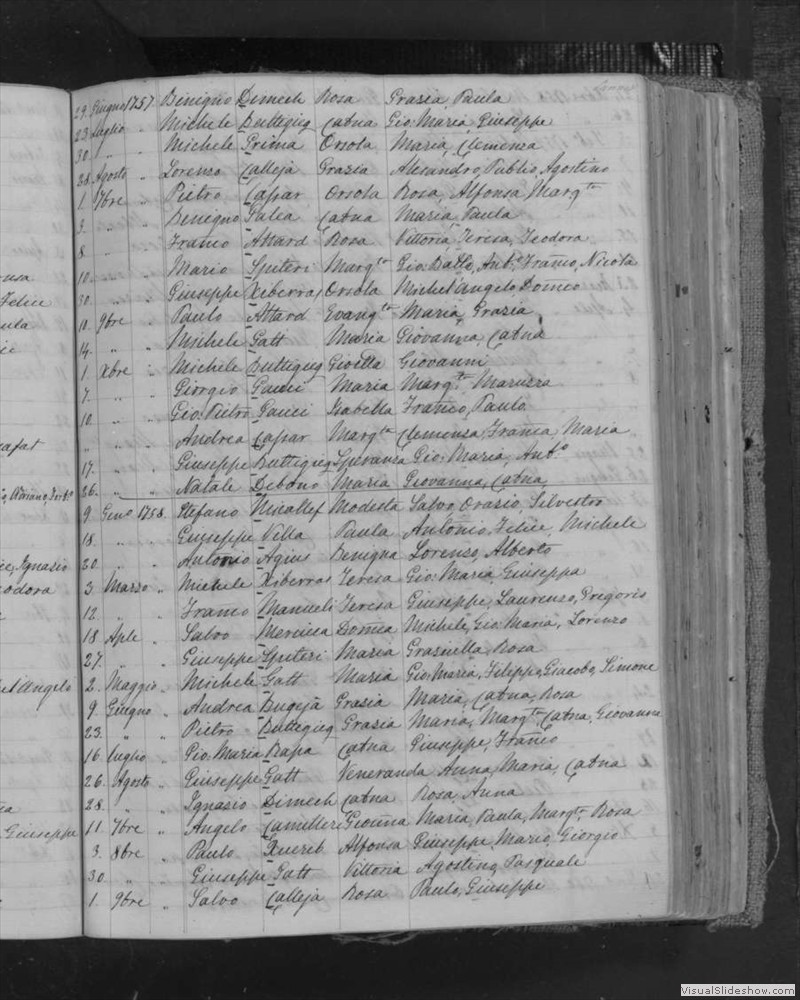 29. Giugno 1757 Benigno Dimech Rosa Grazia, Paula
23. Luglio " Michele Buttegieg Catna Gio: Maria, Giuseppe
30. " " Michele Prima Orsola Maria, Clemenza
28. Agosto " Lorenzo Calleja Grazia Alesandro, Publio, Agostino
1. 7bre " Pietro Capar Orsola Rosa, Alfonsa, Margta
3. " " Benegno Galea Catna Maria, Paula
8. " " Franco Attard Rosa Vittoria, Teresa, Teodora
10. " " Mario Spiteri Margta Gio: Batto, Anto, Franco, Nicola
30. " " Giuseppe Xiberras Orsola Michel'angelo, Domco
11. 9bre " Paulo Attard Evangta Maria, Grazia
14. " " Michele Gatt Maria Giovanna, Catna
1. Xbre " Michele Buttegieg Gioetta Giovanni
7. " " Giorgio Gauci Maria Margta Maruzza
10. " " Gio: Pietro Gauci Isabella Franco, Paulo
" " " Andrea Capar Margta Clemenza, Franca, Maria
17. " " Giuseppe Buttegieg Speranza Gio: Maria, Anto
26. " " Natale Debono Maria Giovanna, Catna
9. Geno 1758. Stefano Micallef Modesta Salvo, Orazio, Silvestro
18. " " Giuseppe Villa Paula Antonio, Felice, Michele
20. " " Antonio Agius Benigna Lorenzo, Alberto
3. Marzo " Michele Xiberras Teresa Gio: Maria, Giuseppa
12. " " Franco Manueli Teresa Giuseppe, Laurenzo, Gregorio
18. Aple " Salvo Mercieca Domca Michele, Gio: Maria, Lorenzo
27. " " Giuseppe Spiteri Maria Graziella, Rosa
2. Maggio " Michele Gatt Maria Gio: Maria, Filippo, Giacobo, Simone
9. Giugno " Andrea Bugeja Grazia Maria, Catna, Rosa
23. " " Pietro Buttegieg Grazia Maria, Margta, Catna, Giovanna
16. Luglio " Gio: Maria Bapa Catna Giuseppe, Franco
26. Agosto " Giuseppe Gatt Veneranda Anna, Maria, Catna
28. " " Ignazio Dimech Catna Rosa, Anna
11. 7bre " Angelo Camilleri Gioanna Maria, Paula, Margta, Rosa
3. 8bre " Paulo Xuereb Alfonsa Giuseppe, Mario, Giorgio
30. " " Giuseppe Gatt Vittoria Agostino, Pasquale
1. 9bre " Salvo Calleja Rosa Paulo, Giuseppe
VisualSlideshow.com